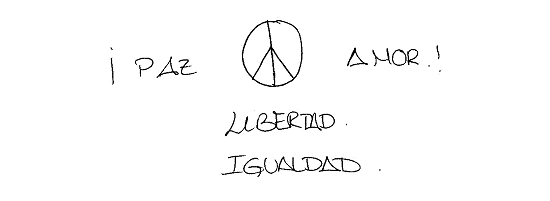 ¡ PAZ ☮ AMOR.!
LIBERTAD.
IGUALDAD.